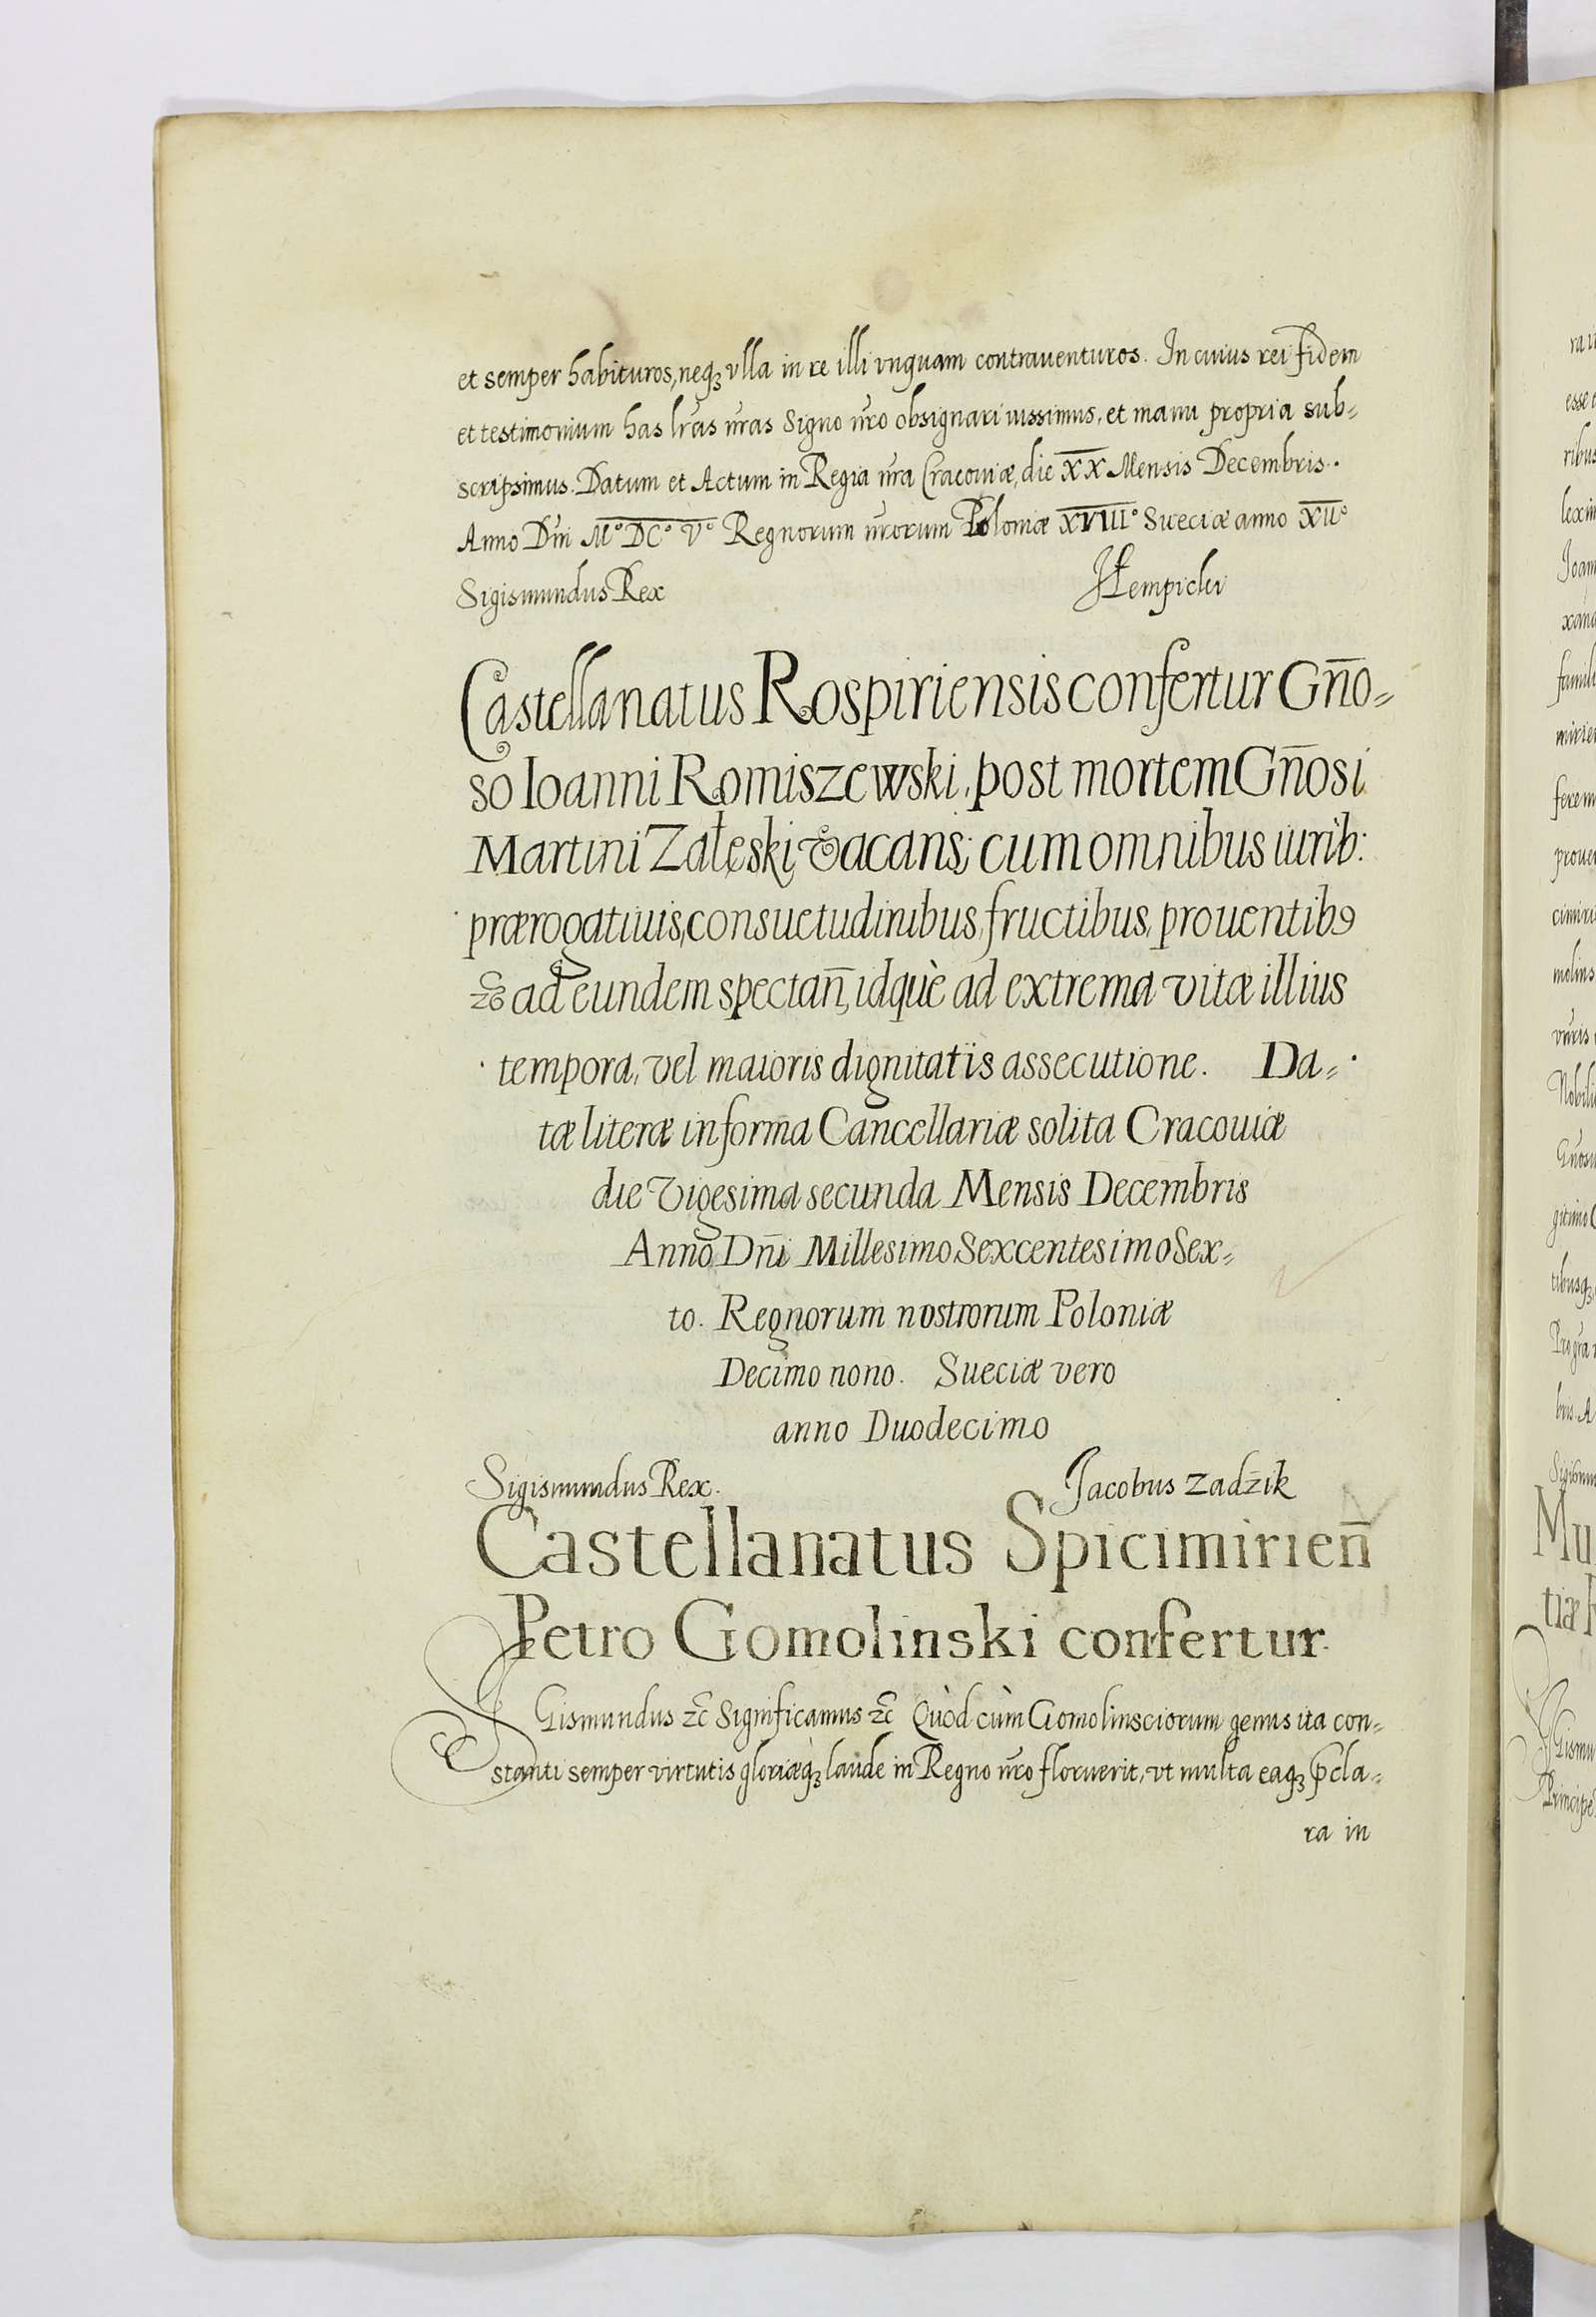 et semper habituros, neqꝫ vlla in re illi vnguam contrauenturos. In cuius rei fidem
et testimonium has lr̃as nr̃as Signo nr̃o obsignari iussimus, et manu propria sub=
scripsimus. Datum et Actum in Regia nr̃a Cracouiæ, die X̅X̅ Mensis Decembris.
Anno Dn̄i M° DC° V° Regnorum nr̃orum Poloniæ XVIII° Sueciæ anno XII°
Sigismundus Rex
Castellanatus Rospiriensis confertur Gn̄o=
so Ioanni Romiszewski, post mortem Gn̄osi
Martini Zaleski vacans; cum omnibus iurib:
prærogatiuis, consuetudinibus, fructibus, prouentibꝰ
&c ad eundem spectan̄, idquè ad extrema vitæ illius
tempora, vel maioris dignitatis assecutione. Da=
tæ literæ in forma Cancellariæ solita Cracouiæ
die Vigesima secunda Mensis Decembris
Anno Dn̄i Millesimo Sexcentesimo Sex=
to. Regnorum nostrorum Poloniæ
Decimo nono. Sueciæ vero
anno Duodecimo
Sigismundus Rex. Jacobus Zadzik
Castellanatus Spicimirien̄
Petro Gomolinski confertur.
SIGismundus &c Significamus &c Quòd cùm Gomolinsciorum genus ita con=
stanti semper virtutis gloriæqꝫ laude in Regno nr̃o floruerit, vt multa eaqꝫ p̄cla=
ra in